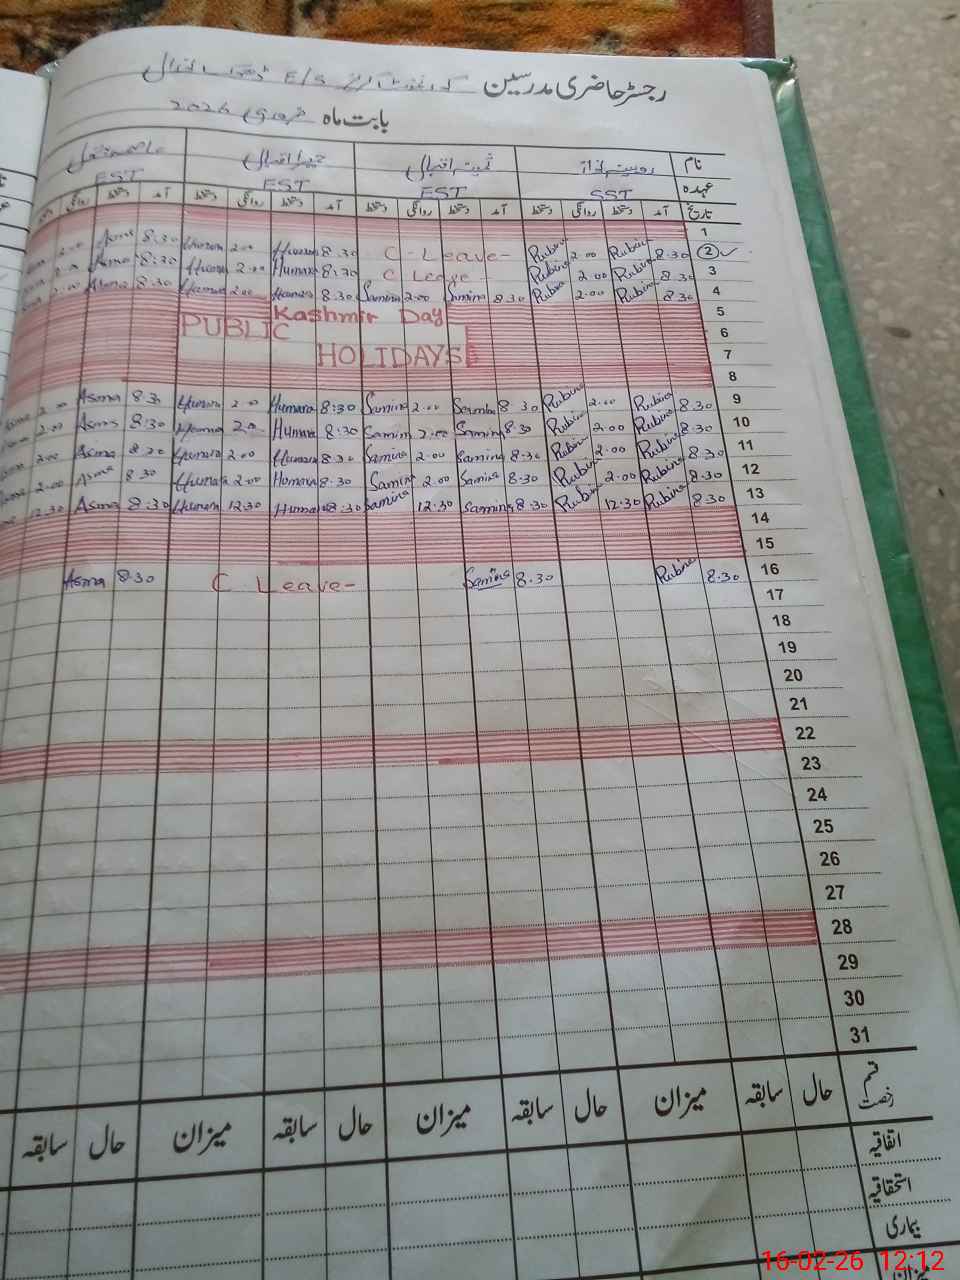 رجسٹر حاضری مدرسین گورنمنٹ گرلز E/S
بابت ماہ فروری 2026
نام روبینہ ناز ثمینہ اقبال حمیرا اقبال
عہدہ SST EST EST EST
تاریخ آمد دستخط روانگی دستخط آمد دستخط روانگی دستخط آمد دستخط روانگی دستخط آمد دستخط روانگی
1
2 8.30 Rubina 2.00 Rubina C - Leave - 8.30 Humara 2.00 Humara 8.30 Asma 2.00
3 8.30 Rubina 2.00 Rubina C Leave - 8:30 Humara 2.00 Humara 8:30 Asma 2.00
4 8.30 Rubina 2.00 Rubina 8.30 Samina 2.00 Samina 8.30 Humara 2.00 Humara 8.30 Asma 2.00
5 Kashmir Day
6 PUBLIC
7 HOLIDAYS
8
9 8.30 Rubina 2.00 Rubina 8.30 Samina 2.00 Samina 8:30 Humara 2.00 Humara 8.30 Asma 2.00 Asma
10 8.30 Rubina 2.00 Rubina 8.30 Samina 2.00 Samina 8:30 Humara 2.00 Humara 8:30 Asma 2.00
11 8.30 Rubina 2.00 Rubina 8.30 Samina 2.00 Samina 8.30 Humara 2.00 Humara 8.30 Asma 2.00
12 8.30 Rubina 2.00 Rubina 8.30 Samina 2.00 Samina 8.30 Humara 2.00 Humara 8.30 Asma 2.00
13 8.30 Rubina 12.30 Rubina 8.30 Samina 12.30 Samina 8.30 Humara 12.30 Humara 8.30 Asma 12.30
14
15
16 8.30 Rubina 8.30 Samina C Leave - 8.30 Asma
17
18
19
20
21
22
23
24
25
26
27
28
29
30
31
قسم رخصت حال سابقہ میزان حال سابقہ میزان حال سابقہ میزان حال سابقہ
اتفاقیہ
استحقاقیہ
بیماری
میزان
16-02-26 12:12